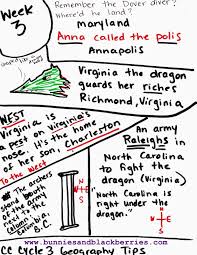 Week
3
Remember the Dover diver?
Where'd he land?
Maryland
Anna called the polis
Annapolis
Virginia the dragon
guards her riches
Richmond, Virginia
WEST
Virginia is
a pest on Virginia's
nose. It's the home
of Son Charleston
To the west
An army
Raleighs in
North Carolina
to fight the
dragon (Virginia)
"North Carolina is
right under the
dragon."
The archers
the army
next to the
Columbia
www.bunniesandblackberries.com
CC Cycle 3 Geography Tips